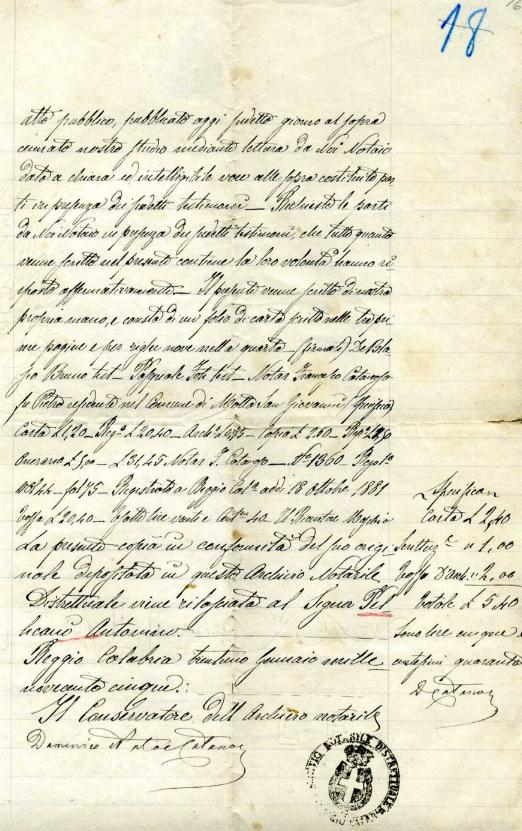 18
atto pubblico, pubblicato oggi sudetto giorno al sopra
cennato nostro studio mediante lettura da noi Notaio
data a chiara ed intelligibile voce alle sopra costituite par
ti in presenza dei sudetti testimoni _ Richieste le parti
da Noi Notaio in presenza dei sudetti testimoni, che tutto quanto
venne scritto nel presente contiene la loro volontà hanno ri
sposto affirmativamente _ Il presente venne scritto di nostra
propria mano, e consta di un folio di carta scritto nelle tre pri
me pagine e per righe nove nella quarta _ (firmati) De Bla
sio Bruno test _ Pasquale test _ Notar Francesco
fu Pietro residente nel Comune di Motta San Giovanni Specifica
Carta £ 1,20 _ Reg.° £ 20,40 _ Arch.° _ Copia £ 2.60
Onorario £ 5,00 _ £ 31,45 Notar F. _ N.° 1360 _ Reg.to
44 _ fol. 75 _ Registrato a Reggio Cal.a addì 18 ottobre 1881
Tassa £ 20,40 _ Esatto lire venti e Cent.mi 40. Il Ricevitore
La presente copia in conformità del suo origi
nale depositata in questo Archivio Notarile
Distrettuale viene rilasciata al Signor Pel
licanò Antonino.
Reggio Calabria trentuno Gennaio mille
novecento cinque:
Il Conservatore dell'Archivio notarile
Specifica
Carta £ 2,40
Scritturaz.e " 1,00
Tassa d'Arch.: 2,00
Totale £ 5,40
Sono lire cinque e
centesimi quaranta
D. Catanoso
ARCHIVIO NOTARILE DISTRETTUALE